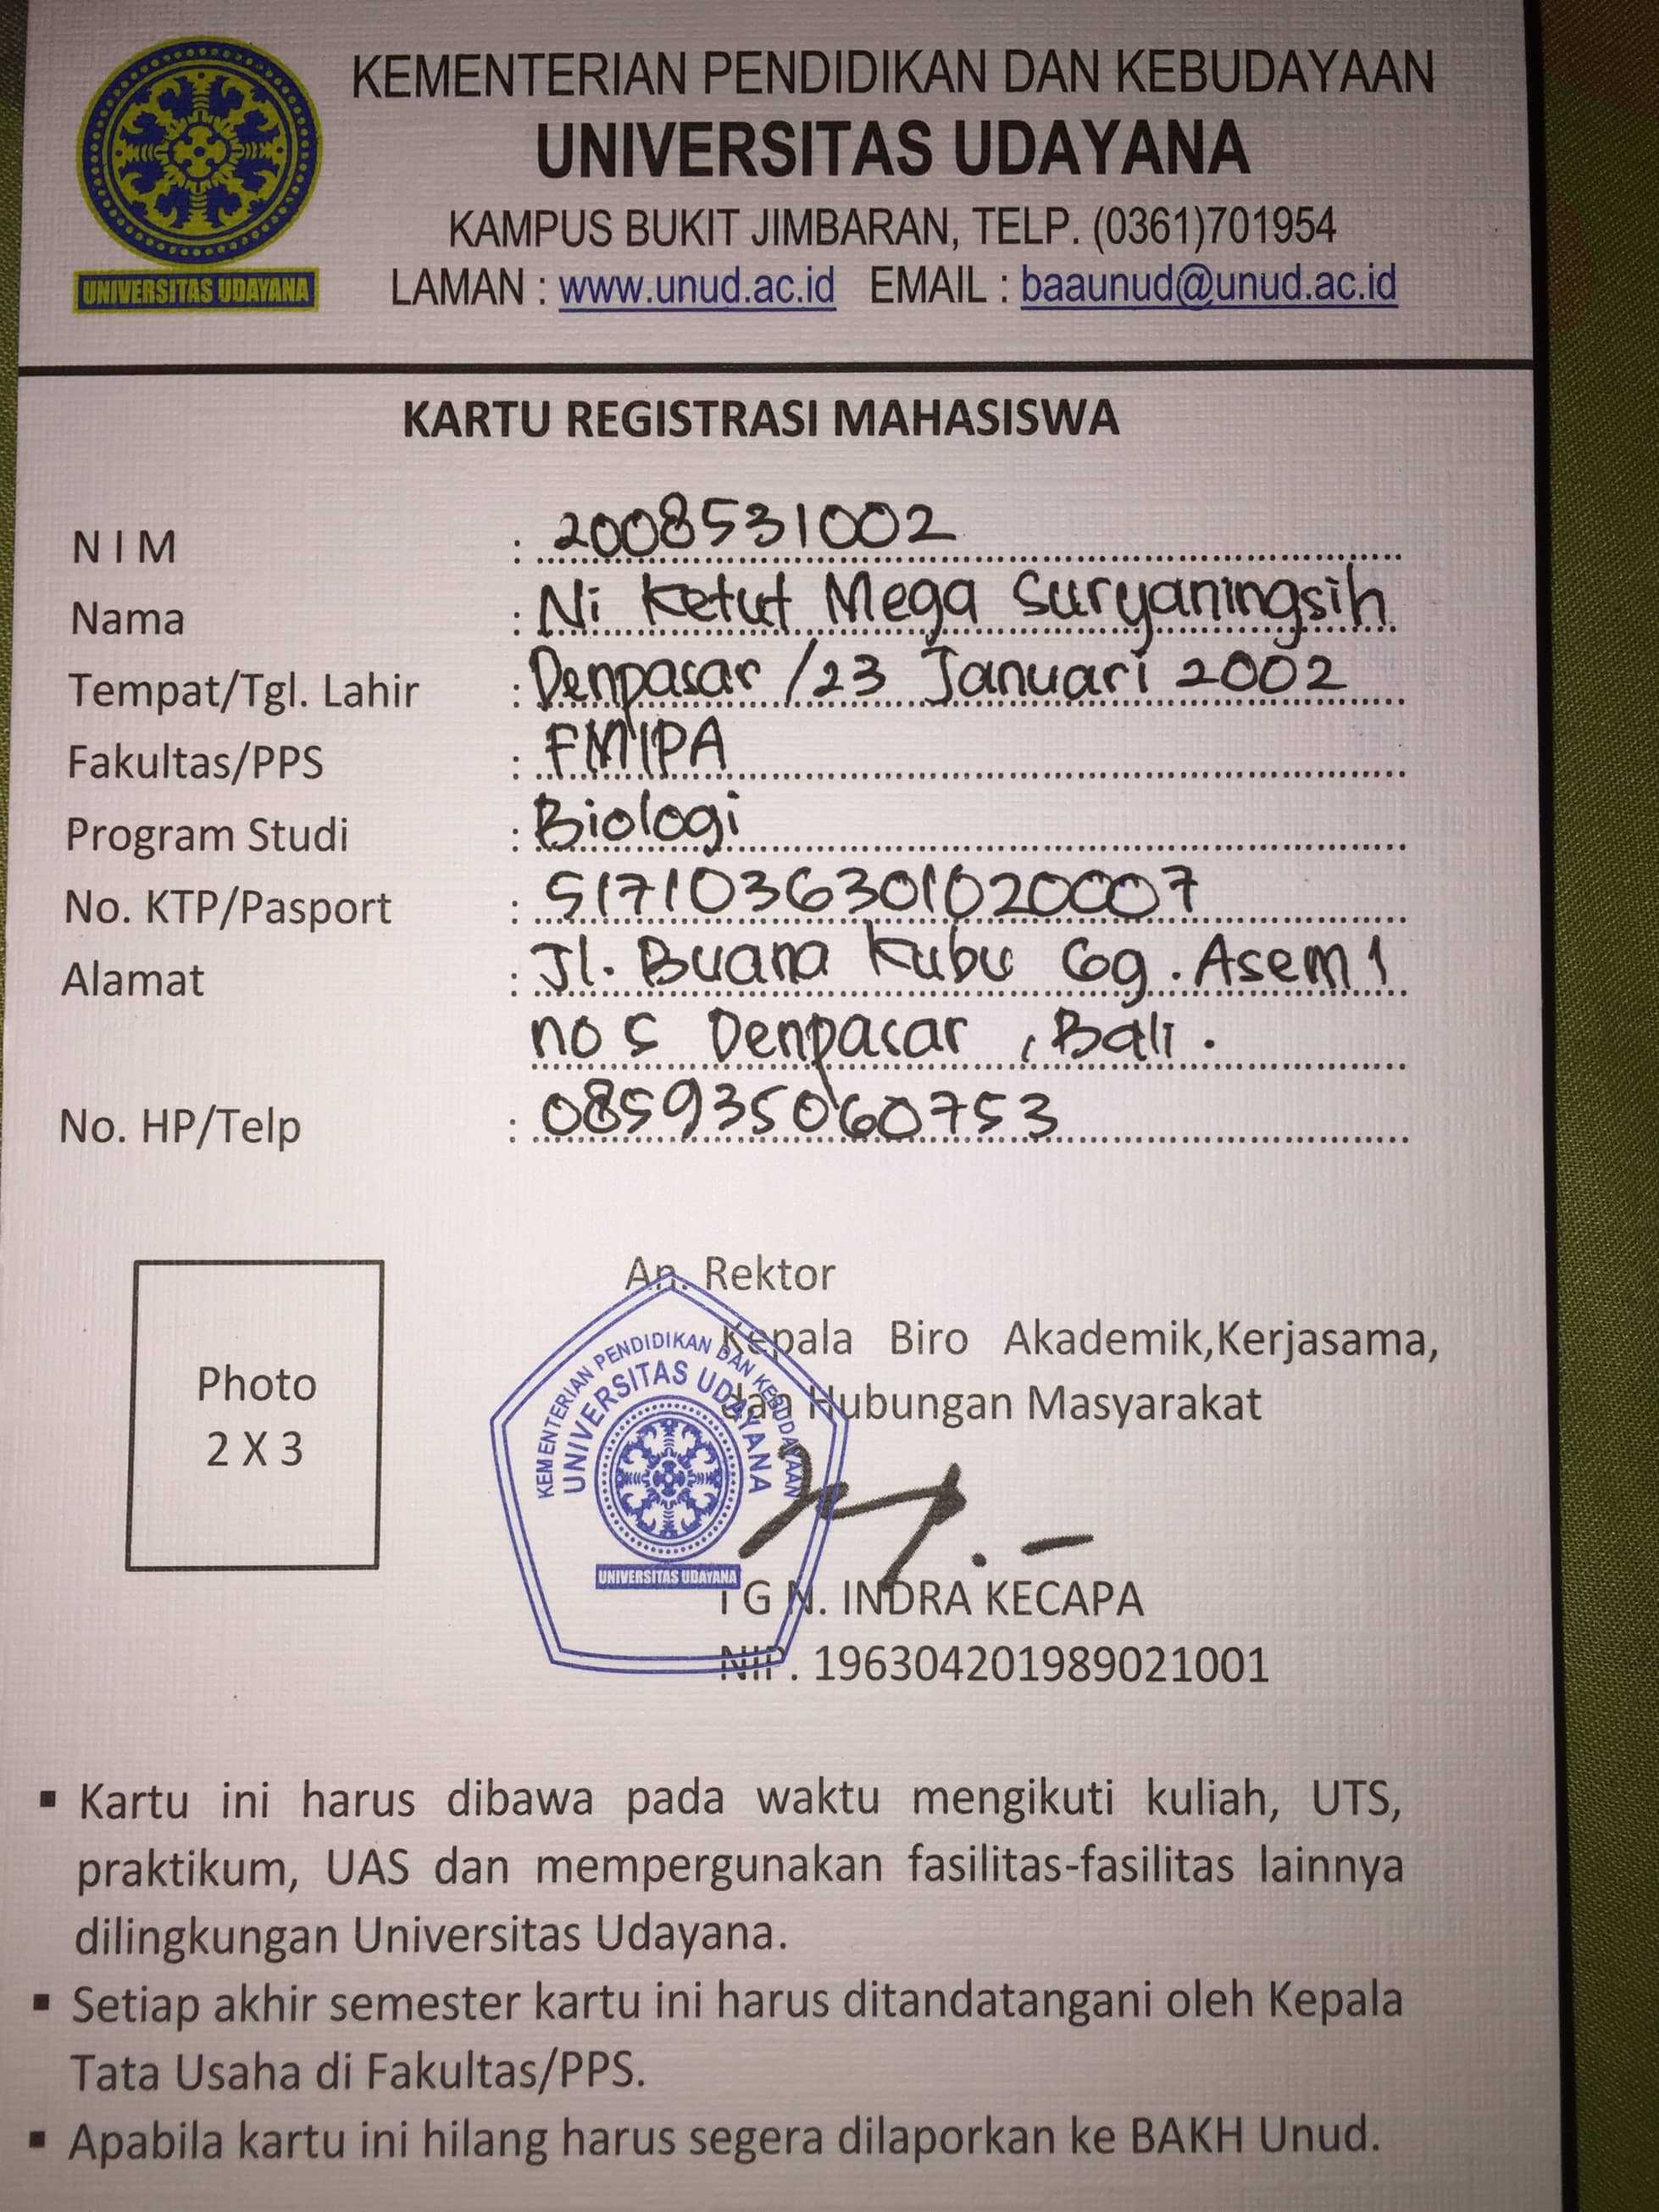 KEMENTERIAN PENDIDIKAN DAN KEBUDAYAAN
UNIVERSITAS UDAYANA
KAMPUS BUKIT JIMBARAN, TELP. (0361)701954
LAMAN : www.unud.ac.id EMAIL : baaunud@unud.ac.id
UNIVERSITAS UDAYANA
KARTU REGISTRASI MAHASISWA
N I M : 2008531002
Nama : Ni Ketut Mega Suryaningsih
Tempat/Tgl. Lahir : Denpasar /23 Januari 2002
Fakultas/PPS : FMIPA
Program Studi : Biologi
No. KTP/Pasport : 5171036301020007
Alamat : Jl. Buana Kubu Gg. Asem 1
no 5 Denpasar , Bali .
No. HP/Telp : 085935060753
Photo
2 X 3
An. Rektor
Kepala Biro Akademik,Kerjasama,
dan Hubungan Masyarakat
KEMENTERIAN PENDIDIKAN DAN KEBUDAYAAN
UNIVERSITAS UDAYANA
UNIVERSITAS UDAYANA
G N. INDRA KECAPA
NIP. 196304201989021001
▪ Kartu ini harus dibawa pada waktu mengikuti kuliah, UTS,
praktikum, UAS dan mempergunakan fasilitas-fasilitas lainnya
dilingkungan Universitas Udayana.
▪ Setiap akhir semester kartu ini harus ditandatangani oleh Kepala
Tata Usaha di Fakultas/PPS.
▪ Apabila kartu ini hilang harus segera dilaporkan ke BAKH Unud.